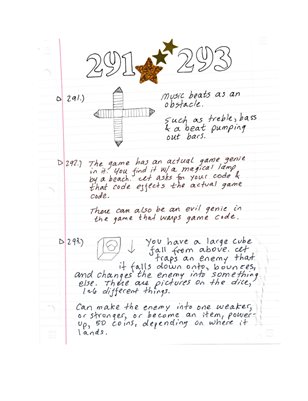 291 293
291.) Music beats as an
obstacle.
Such as treble, bass
& a beat pumping
out bars.
292.) The game has an actual game genie
in it. You find it w/a magical lamp
by a beach. It asks for your code &
that code effects the actual game
code.
There can also be an evil genie in
the game that warps game code.
293.) You have a large cube
fall from above. It
traps an enemy that
it falls down onto, bounces,
and changes the enemy into something
else. There are pictures on the dice,
1-6 different things.
Can make the enemy into one weaker,
or stronger, or become an item, power-
up, 50 coins, depending on where it
lands.